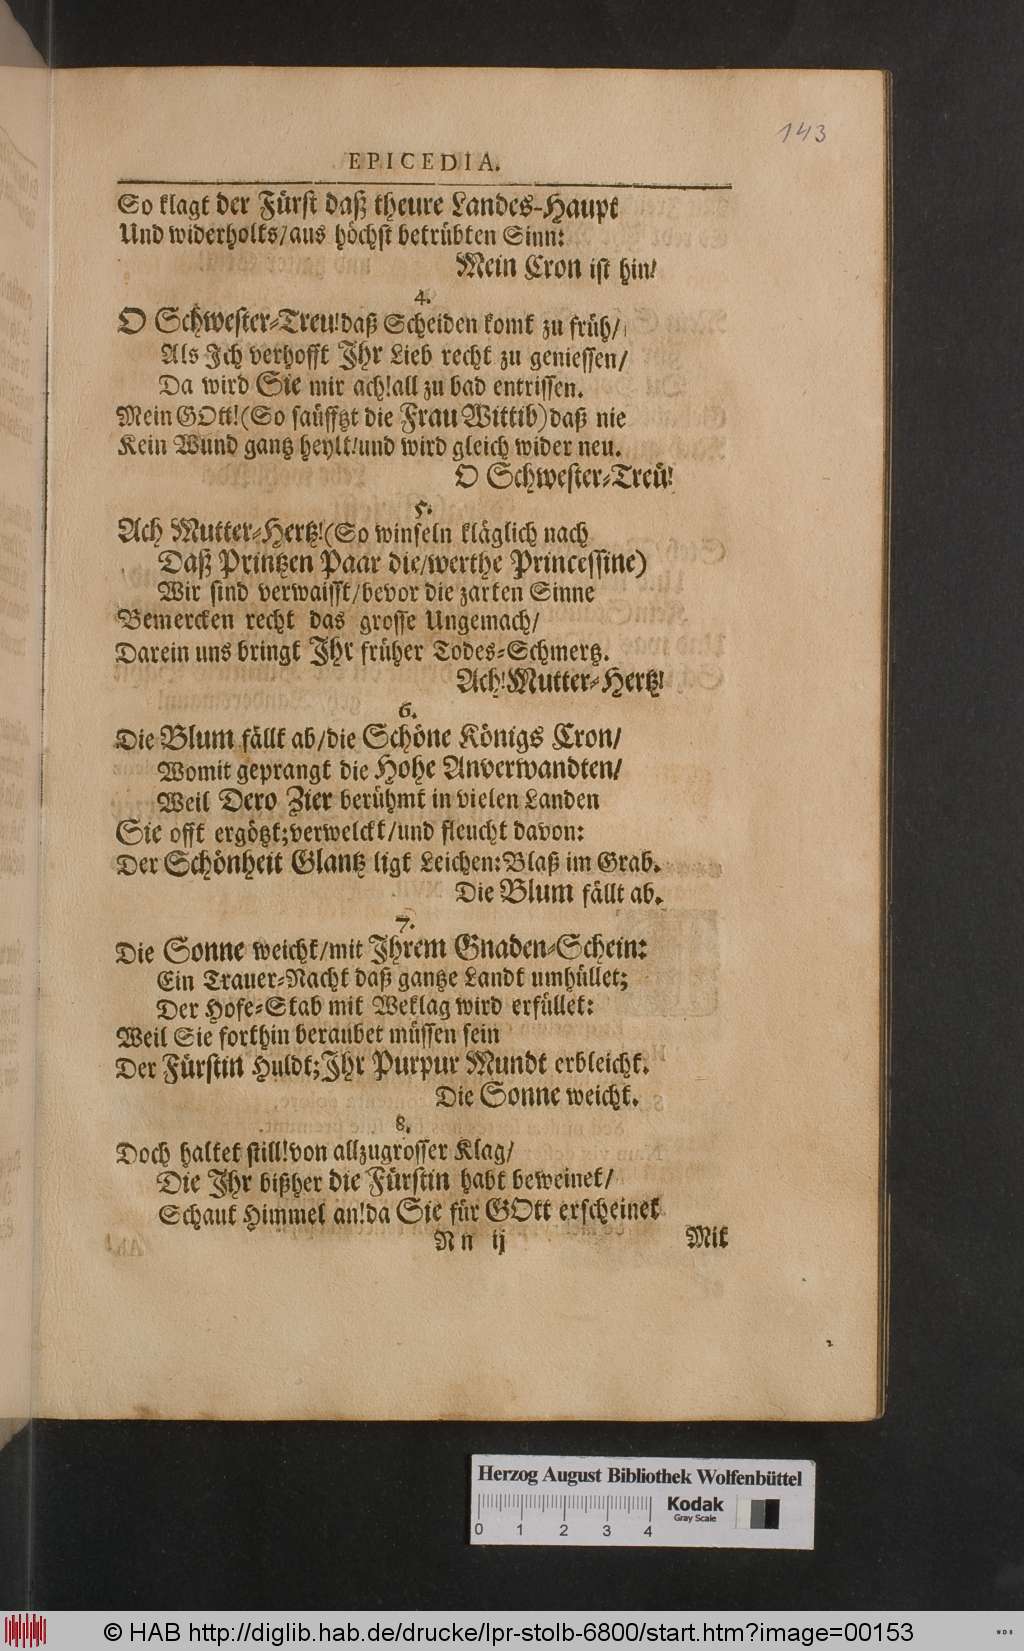 143
EPICEDIA.
So klagt der Fürst daß theure Landes-Haupt
Und widerholts/aus höchst betrübten Sinn:
Mein Cron ist hin/
4.
O Schwester-Treu!daß Scheiden komt zu früh/
Als Ich verhofft Ihr Lieb recht zu geniessen/
Da wird Sie mir ach!all zu bad entrissen.
Mein GOtt!(So saüfftzt die Frau Wittib)daß nie
Kein Wund gantz heylt/und wird gleich wider neu.
O Schwester-Treü!
5.
Ach Mutter-Hertz!(So winseln kläglich nach
Daß Printzen Paar die/werthe Princessine)
Wir sind verwaisst/bevor die zarten Sinne
Bemercken recht das grosse Ungemach/
Darein uns bringt Ihr früher Todes-Schmertz.
Ach!Mutter-Hertz!
6.
Die Blum fällt ab/die Schöne Königs Cron/
Womit geprangt die Hohe Anverwandten/
Weil Dero Zier berühmt in vielen Landen
Sie offt ergötzt;verwelckt/und fleucht davon:
Der Schönheit Glantz ligt Leichen:Blaß im Grab.
Die Blum fällt ab.
7.
Die Sonne weicht/mit Ihrem Gnaden-Schein:
Ein Trauer-Nacht daß gantze Landt umhüllet;
Der Hofe-Stab mit Weklag wird erfüllet:
Weil Sie forthin beraubet müssen sein
Der Fürstin Huldt;Ihr Purpur Mundt erbleicht.
Die Sonne weicht.
8.
Doch haltet still!von allzugrosser Klag/
Die Ihr bißher die Fürstin habt beweinet/
Schaut Himmel an!da Sie für GOtt erscheinet
Nn ij Mit
Herzog August Bibliothek Wolfenbüttel
Kodak
Gray Scale
0 1 2 3 4
© HAB http://diglib.hab.de/drucke/lpr-stolb-6800/start.htm?image=00153